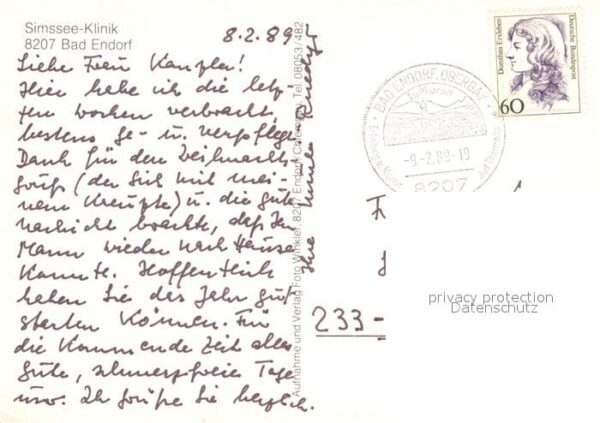 Simssee-Klinik
8207 Bad Endorf
8.2.89
Liebe Frau Kanzler!
Hier habe ich die letz-
ten Wochen verbracht,
bestens ge- u. verpflegt.
Dank für den Weihnachts-
gruß (der sich mit mei-
nem kreuzte) u. die gute
Nachricht brachte, daß Ihr
Mann wieder nach Hause
konnte. Hoffentlich
haben Sie das Jahr gut
starten können. Für
die kommende Zeit alles
Gute, schmerzfreie Tage
usw. Ich grüße Sie herzlich.
Ihre
Aufnahme und Verlag Foto Winkler, 8207 Endorf/Chiemsee, Tel. 08053/482
Dorothea Erxleben
Deutsche Bundespost
60
BAD ENDORF, OBERBAY
Luftkurort
-9.-2.89-19
8207
233-
privacy protection
Datenschutz